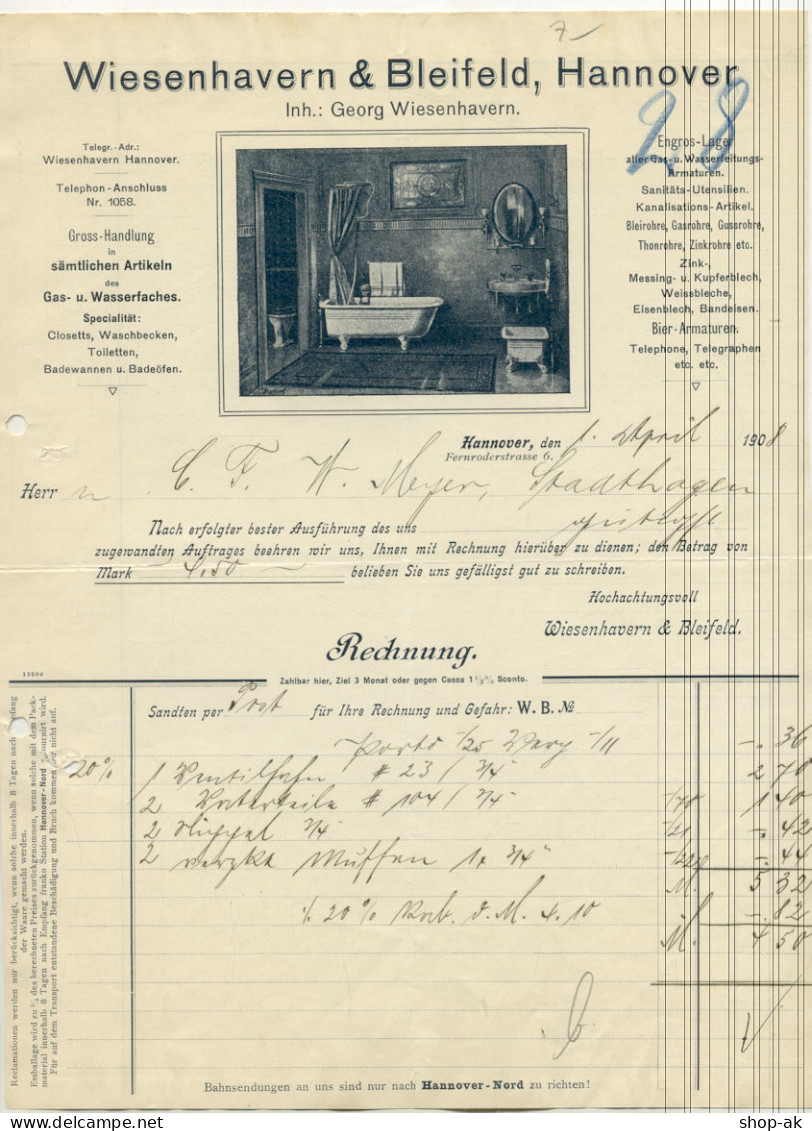 7
Wiesenhavern & Bleifeld, Hannover
Inh.: Georg Wiesenhavern.
28
Telegr.-Adr.:
Wiesenhavern Hannover.
Telephon-Anschluss
Nr. 1058.
Gross-Handlung
in
sämtlichen Artikeln
des
Gas- u. Wasserfaches.
Specialität:
Closetts, Waschbecken,
Toiletten,
Badewannen u. Badeöfen.
Engros-Lager
aller Gas- u. Wasserleitungs-
Armaturen.
Sanitäts-Utensilien.
Kanalisations-Artikel.
Bleirohre, Gasrohre, Gussrohre,
Thonrohre, Zinkrohre etc.
Zink-,
Messing- u. Kupferblech,
Weissbleche,
Eisenblech, Bandeisen.
Bier-Armaturen.
Telephone, Telegraphen
etc. etc.
Hannover, den 1. April 1908
Fernroderstrasse 6.
Herr n C. F. W. Meyer, Stadthagen
Nach erfolgter bester Ausführung des uns
zugewandten Auftrages beehren wir uns, Ihnen mit Rechnung hierüber zu dienen; den Betrag von
Mark 4.50 belieben Sie uns gefälligst gut zu schreiben.
Hochachtungsvoll
Wiesenhavern & Bleifeld.
Rechnung.
13206
Zahlbar hier, Ziel 3 Monat oder gegen Cassa 1 2/3 % Sconto.
Sandten per Post für Ihre Rechnung und Gefahr: W. B. No
Porto -/25 Verp -/11 -. 36
20% 1 Ventilhahn # 23 / 3/4" 2 70
2 # 104 / 3/4" -/70 1 40
2 Nippel 3/4" -/21 -. 42
2 verzkt Muffen 1 x 3/4" -/22 -. 44
M. 5 32
% 20% Rab. d. M. 4.10 -. 82
M. 4 50
Reclamationen werden nur berücksichtigt, wenn solche innerhalb 8 Tagen nach Empfang
der Waare gemacht werden.
Emballage wird zu 3/4 des berechneten Preises zurückgenommen, wenn solche mit dem Pack-
material innerhalb 8 Tagen nach Empfang franko Station Hannover-Nord retournirt wird.
Für auf dem Transport entstandene Beschädigung und Bruch kommen wir nicht auf.
Bahnsendungen an uns sind nur nach Hannover-Nord zu richten!
shop-ak